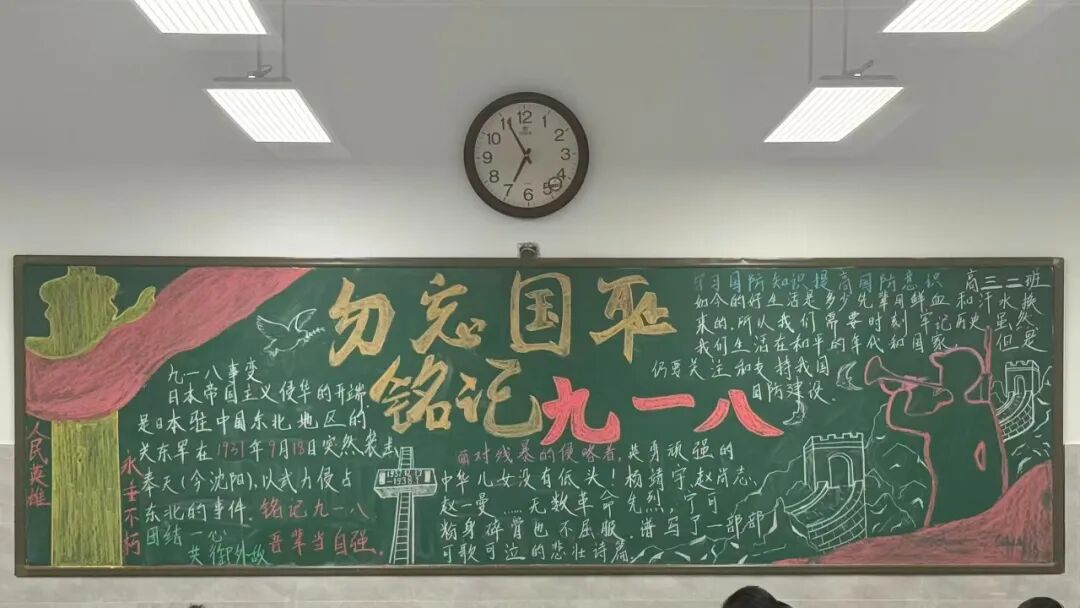 12
1
2
3
4
5
6
7
8
9
10
11
勿忘国耻
铭记九一八
九一八事变
日本帝国主义侵华的开端,
是日本驻中国东北地区的
关东军在1931年9月18日突然袭击
奉天(今沈阳),以武力侵占
东北的事件.铭记九一八
团结一心
共御外敌
吾辈当自强.
人民英雄
永垂不朽
面对残暴的侵略者,英勇顽强的
中华儿女没有低头!杨靖宇,赵尚志,
赵一曼……无数革命先烈,宁可
粉身碎骨也不屈服.谱写了一部部
可歌可泣的悲壮诗篇.
学习国防知识提高国防意识
高三二班
如今的好生活是多少先辈用鲜血和汗水换
来的,所以我们需要时刻牢记历史.虽然
我们生活在和平的年代和国家,但是
仍要关注和支持我国
国防建设.